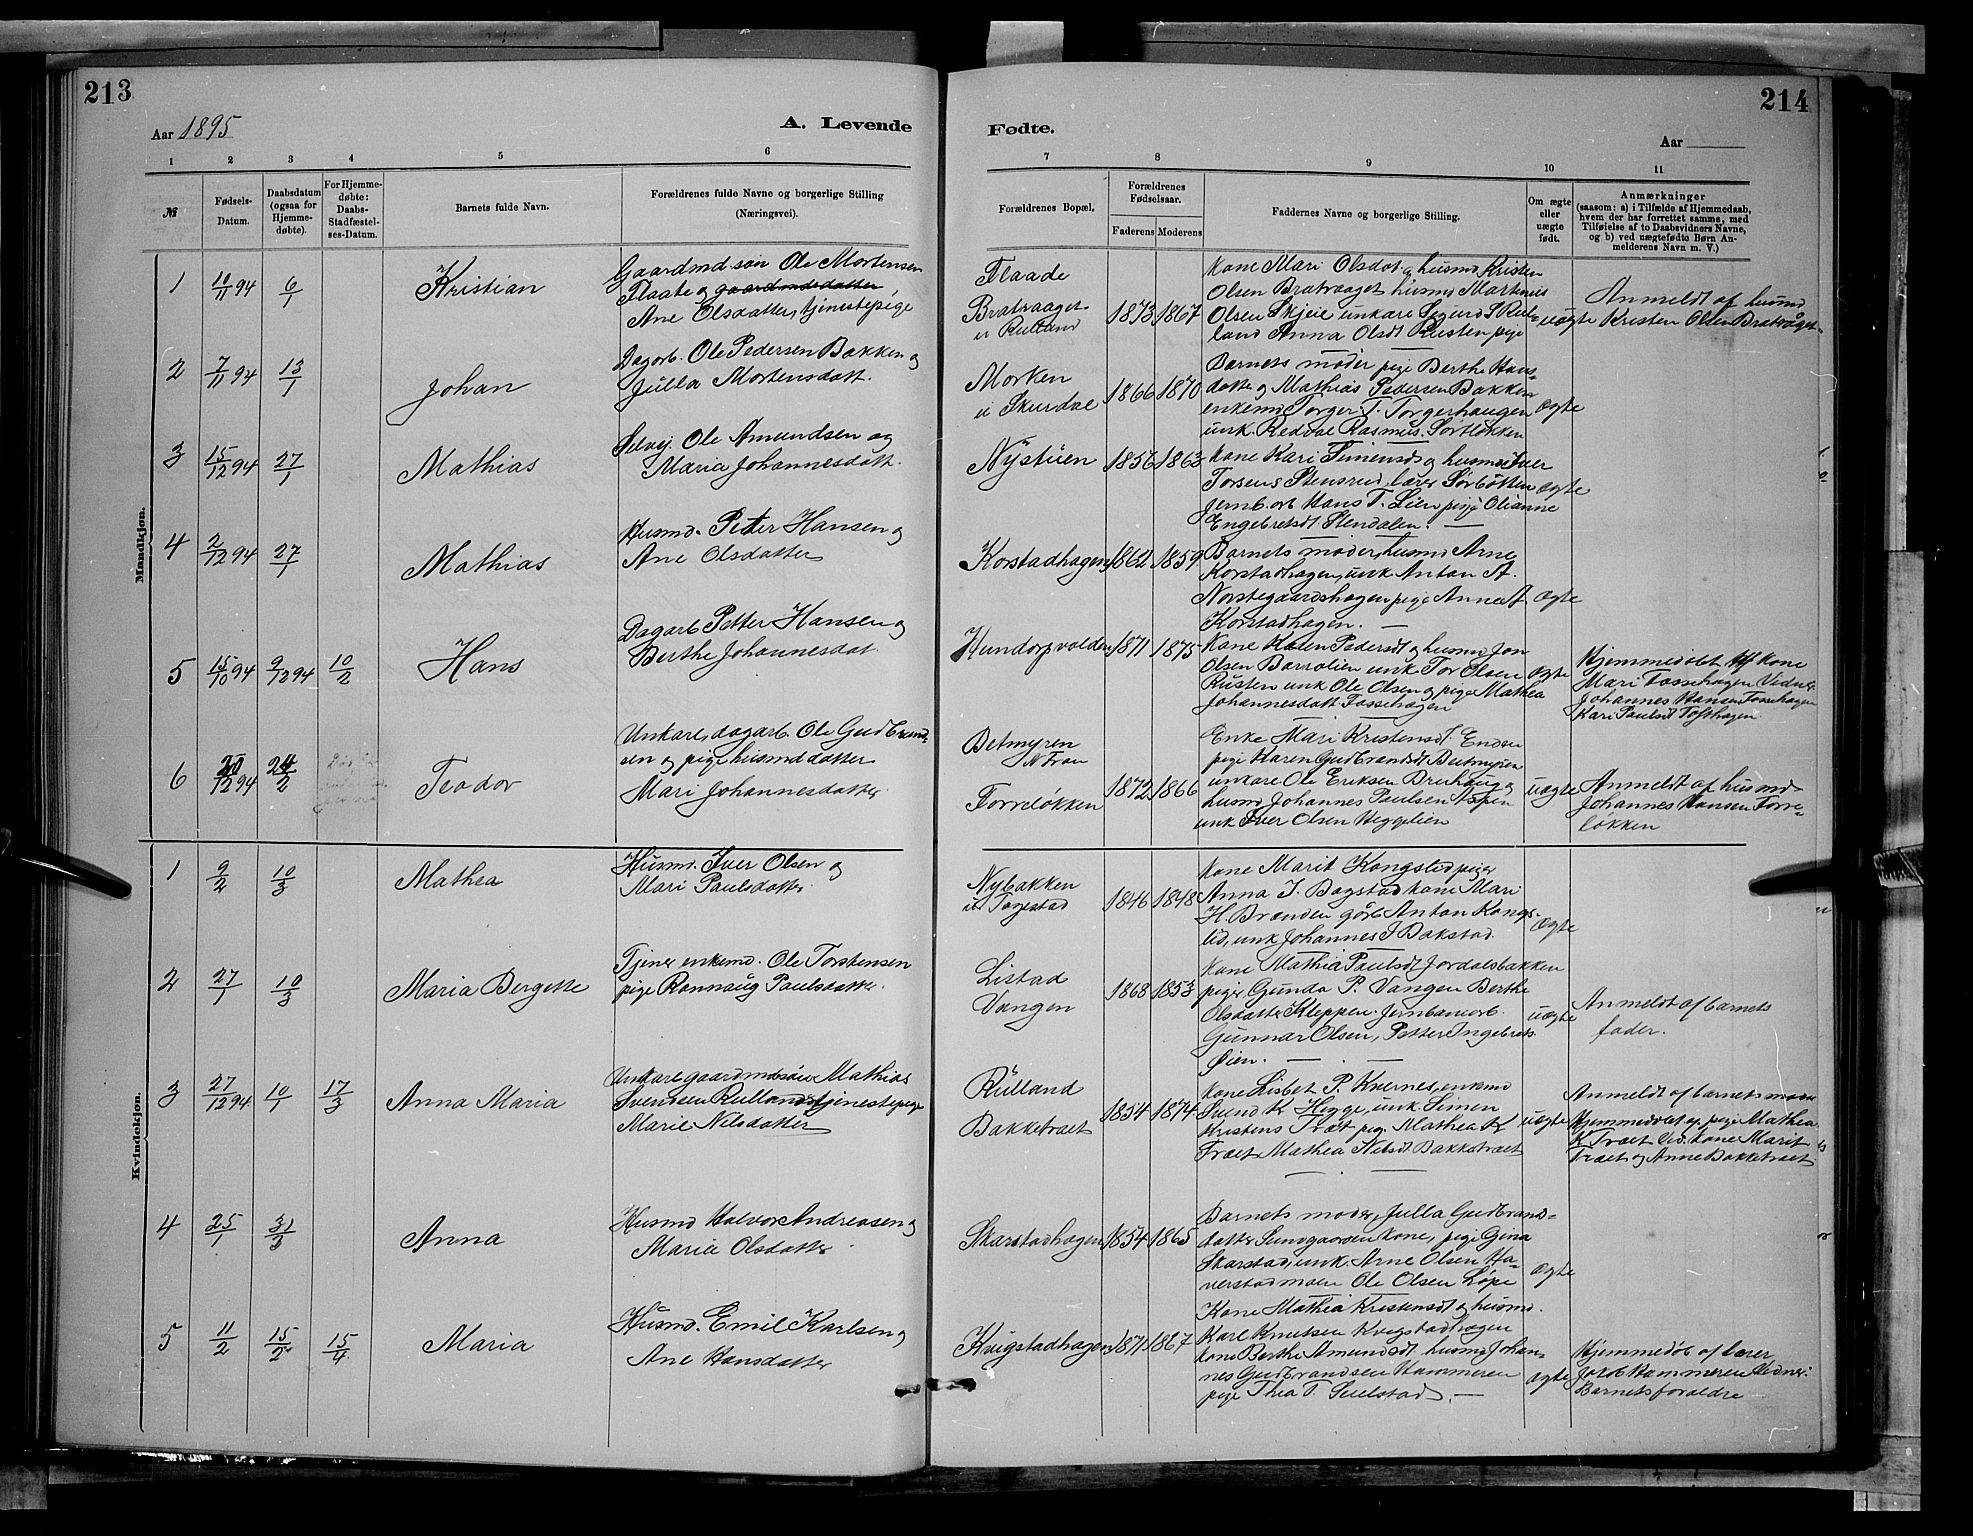 213
214
Aar 1895
A. Levende
Fødte.
Aar
1 2 3 4 5 6 7 8 9 10 11
№
Fødsels-
Datum.
Daabsdatum
(ogsaa for
Hjemme-
døbte).
For Hjemme-
døbte:
Daabs-
Stadfæstel-
ses-Datum.
Barnets fulde Navn.
Forældrenes fulde Navne og borgerlige Stilling
(Næringsvei).
Forældrenes Bopæl.
Forældrenes
Fødselsaar.
Faderens Moderens
Faddernes Navne og borgerlige Stilling.
Om ægte
eller
uægte
født.
Anmærkninger
(saasom: a) i Tilfælde af Hjemmedaab,
hvem der har forrettet samme, med
Tilføielse af to Daabsvidners Navne,
og b) ved uægtefødte Børn An-
melderens Navn m. V.)
Mandkjøn.
1 11/11 94 6/1 Kristian
Gaardmd.søn Ole Mortensen
Flaate og gaardmdsdatter
Ane Olsdatter, tjenestepige
Flaade
Bratvaaget
u Rulland
1873 1867
Kone Mari Olsdot. og husmd Kristen
Olsen Bratvaaget husmd Martenius
Olsen Skjeie unkare Sigurd S Rul-
land Anna Olsdt Rusten pige
uægte
Anmeldt af husmd
Kristen Olsen Bratvåget
2 7/11 94 13/1 Johan
Dagarb. Ole Pedersen Bakken og
Julla Mortensdatt.
Morken
u Skurdal
1866 1870
Barnets moder pige Berthe Hans-
datte og Mathias Pedersen Bakken
enkemd Torger T. Torgerhaugen
unk Redvald Rasmus. Sortløkken
ægte
3 15/12 94 27/1 Mathias
Selvej. Ole Amundsen og
Maria Johannesdatt.
Nystuen
1856 1863
Kone Kari Simensd og husmd Iver
Torsens Stensrud, lærer Sørbotten
Jernb.arb Hans T. Lien pige Olianne
Engebretsdt Stendalen.
ægte
4 2/12 94 27/1 Mathias
Husmd. Petter Hansen og
Ane Olsdatter
Korstadhagen
1862 1859
Barnets moder, husmd Arne
Korstadhagen, unk Anton A.
Norstegaardshagen pige Anne J
Korstadhagen.
ægte
5 15/10 94 9/12 94 10/2 Hans
Dagarb Petter Hansen og
Berthe Johannesdat.
Hundorpvolden
1871 1875
Kone Kalen Pedersdt og husmd Jon
Olsen Barrolien unk Tor Olsen
Rusten unk Ole Olsen og pige Mathea
Johannesdatt Fossehagen
ægte
Hjemmedøbt af kone
Mari Fossehagen Vidner
Johannes Hansen Fossehagen
Kari Paulsdt Tofthagen
6 20/12 94 24/2 Teodor
Unkare, dagarb. Ole Gudbrand-
sen og pige husmd datter
Mari Johannesdatter
Betmyren
N Fron
Forreløkken
1872 1866
Enke Mari Kristensdt Enden
pige Karen Gudbrandsdt Betmyren
unkare Ole Eriksen Bruhaug og
husmd Johannes Paulsen Aspen
unk Iver Olsen Heggelien
uægte
Anmeldt af husmd
Johannes Hansen Forre-
løkken
Kvindekjøn.
1 9/2 10/3 Mathea
Husmd. Iver Olsen og
Mari Paulsdatter.
Nybakken
1846 1848
Kone Marit Kongslid piger
Anna J. Bagstad kone Mari
H. Brænden gårb Anton Kongs-
lid, unk Johannes J Bakstad.
ægte
2 27/1 10/3 Maria Bergette
Tjener enkemd. Ole Torstensen
pige Rannaug Paulsdatte.
Listad
Vangen
1868 1853
Kone Mathia Paulsdt Jordalsbakken
piger Gunda P. Vangen Berthe
Olsdatter Kleppen. Jernbanearb.
Gunnar Olsen, Petter Ingebrets.
Øien.
uægte
Anmeldt af barnets
fader.
3 27/12 94 10/1 17/3 Anna Maria
Unkare gaardmdssøn Mathias
Svendsen Rulland tjenestepige
Marie Nilsdatter
Rulland
Bakketraet
1854 1874
Kone Lisbet P. Kvernes, enkemd
Svend K Hegge, unk Simen
Kristens Træt pig. Mathea K
Træt Mathea Nilsdt Bakketræet
uægte
Anmeldt af barnets moder
Hjemmedøbt af pige Mathea
K Træet Vid. kone Marit
Træet og Anne Bakketraet
4 25/1 31/3 Anna
Husmd Halvor Andreasen og
Maria Olsdatter
Skarstadhagen
1854 1865
Barnets moder, Julla Gudbrand-
datter Sundgaarden kone, pige Gina
Skarstad, unk. Arne Olsen Ha-
verstadmoen Ole Olsen Løpe
ægte
5 11/2 15/2 15/4 Maria
Husmd. Emil Karlsen og
Ane Hansdatter
Kvigstadhagen
1871 1867
Kone Mathia Kristensdt og husmd.
Karl Knutsen Kvigstadhagen
kone Berthe Amundsdt husmd Johan-
nes Gudbrandsen Hammeren
pige Thea T. Sulstad.
ægte
Hjemmedøb af lærer
Jacob Hammeren Vidner:
Barnets forældre